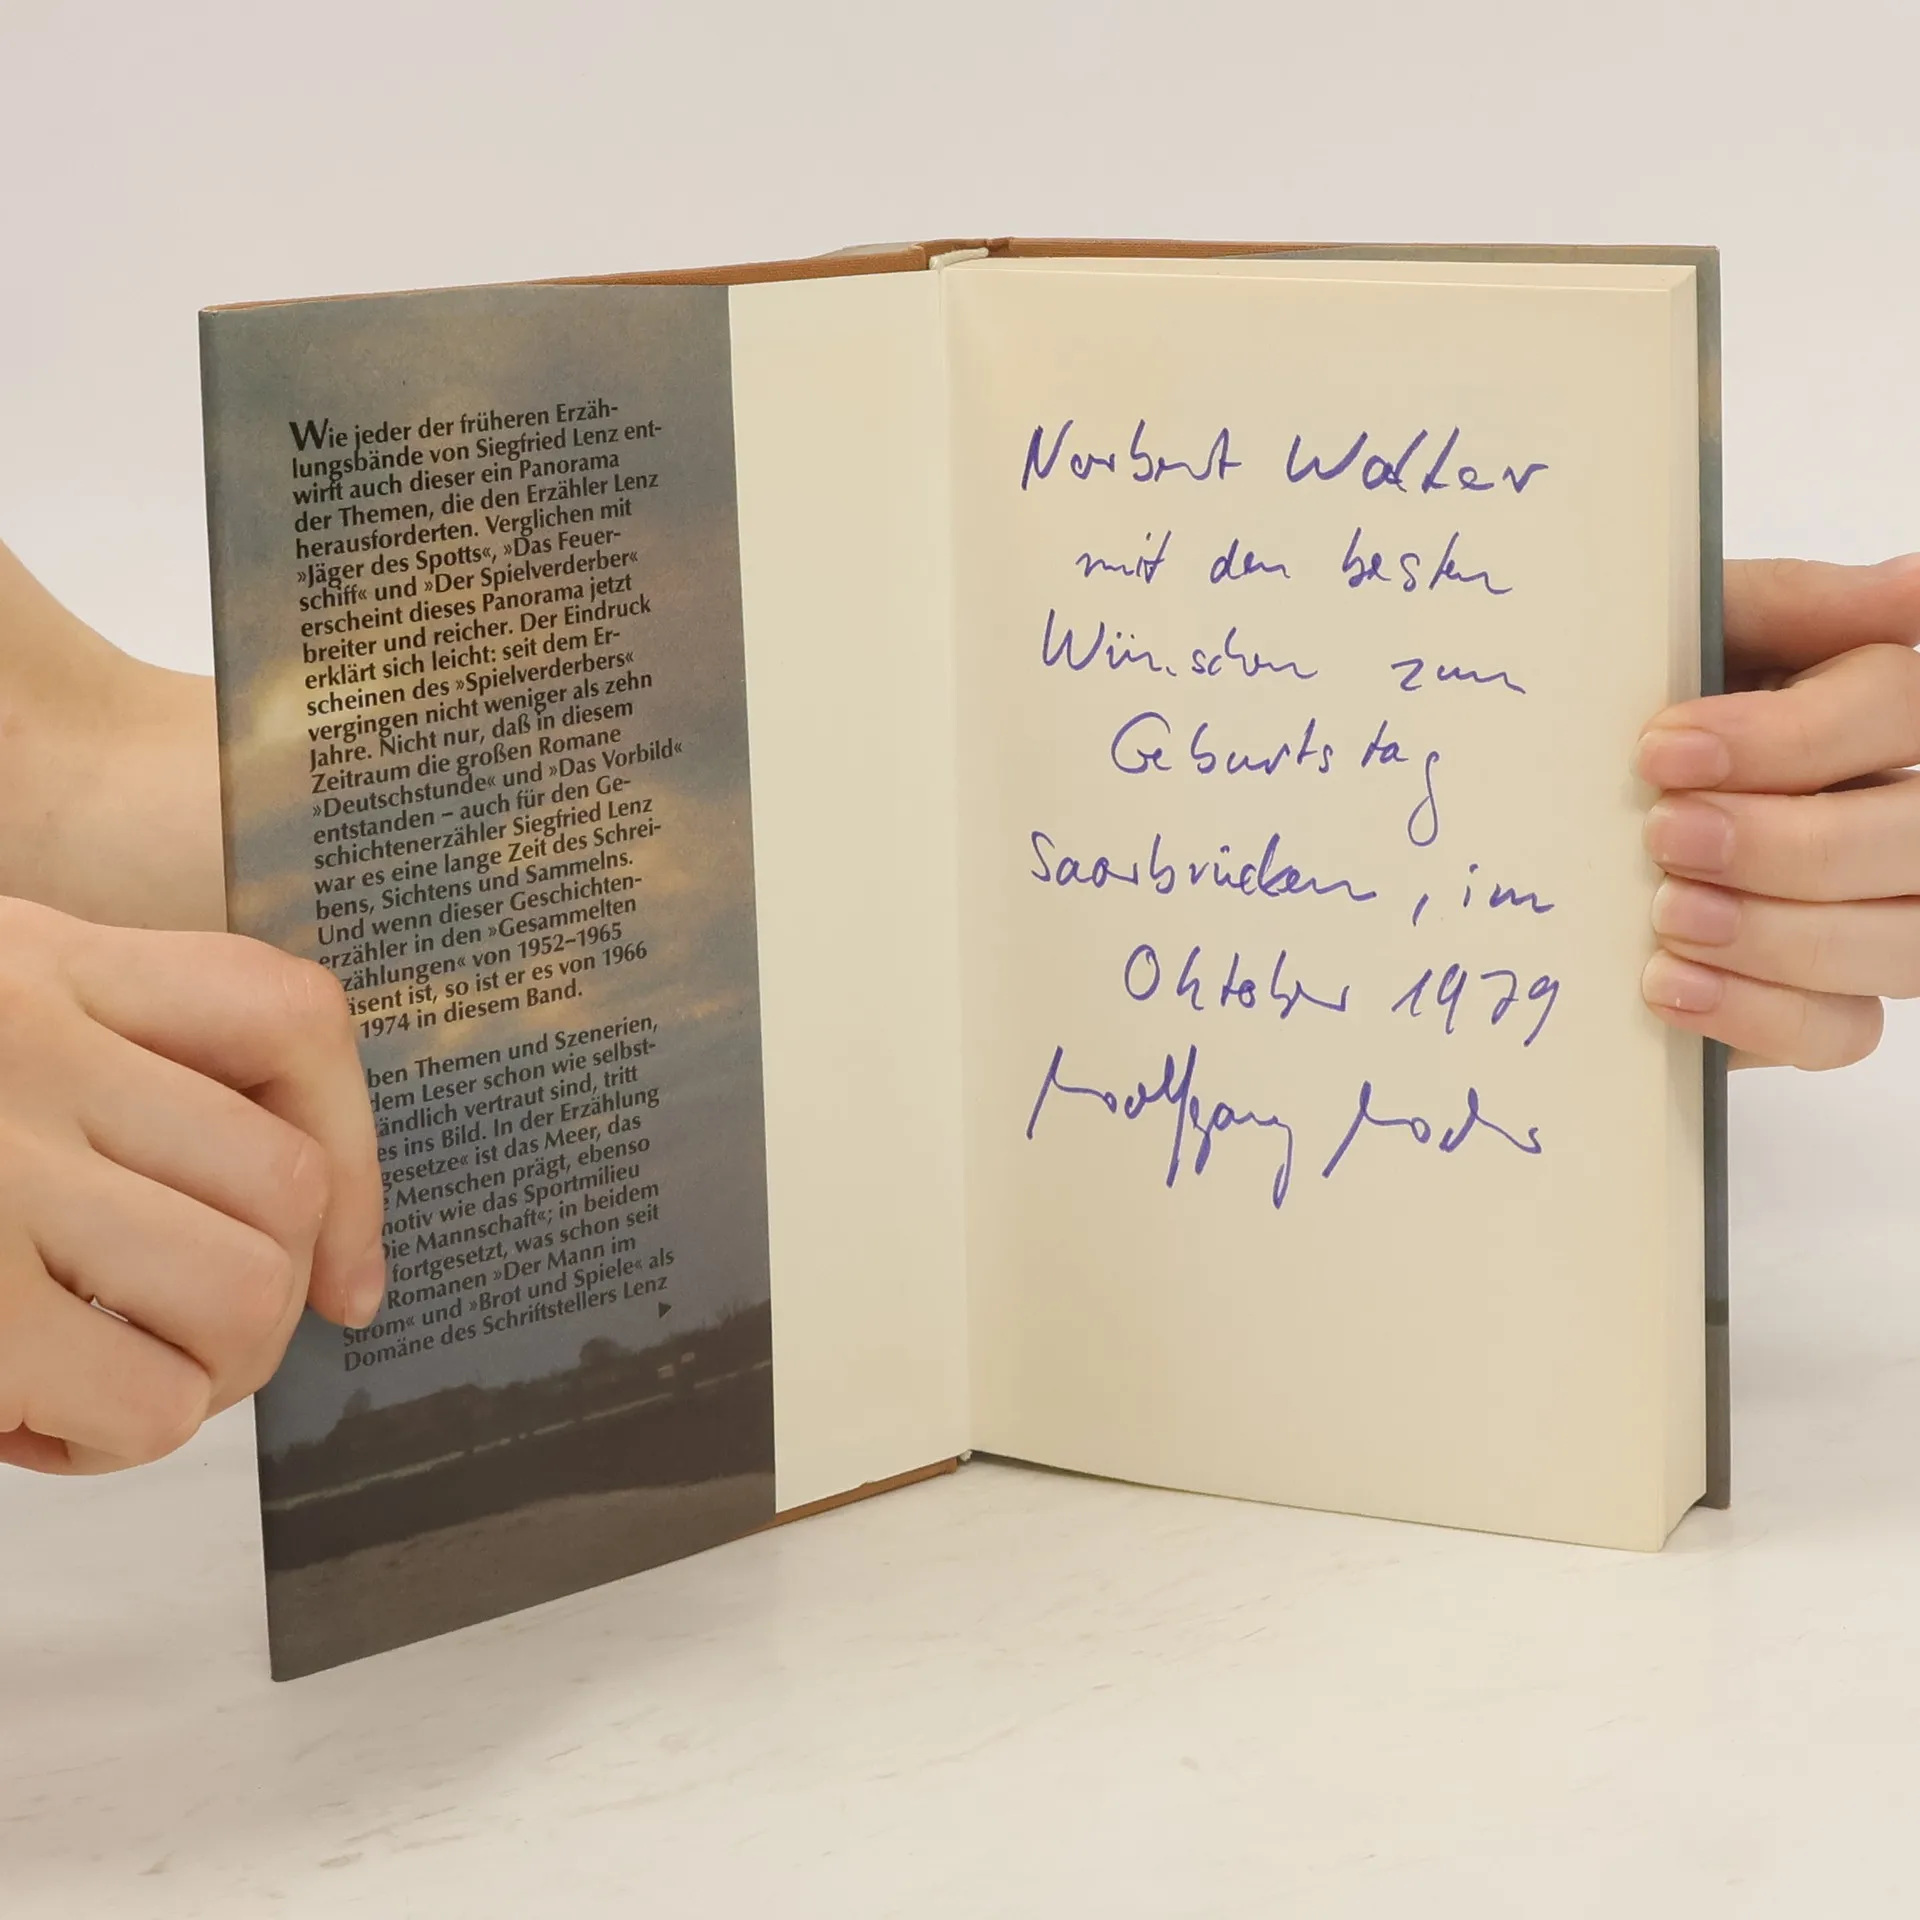 Wie jeder der früheren Erzäh-
lungsbände von Siegfried Lenz ent-
wirft auch dieser ein Panorama
der Themen, die den Erzähler Lenz
herausforderten. Verglichen mit
»Jäger des Spotts«, »Das Feuer-
schiff« und »Der Spielverderber«
erscheint dieses Panorama jetzt
breiter und reicher. Der Eindruck
erklärt sich leicht: seit dem Er-
scheinen des »Spielverderbers«
vergingen nicht weniger als zehn
Jahre. Nicht nur, daß in diesem
Zeitraum die großen Romane
»Deutschstunde« und »Das Vorbild«
entstanden – auch für den Ge-
schichtenerzähler Siegfried Lenz
war es eine lange Zeit des Schrei-
bens, Sichtens und Sammelns.
Und wenn dieser Geschichten-
erzähler in den »Gesammelten
zählungen« von 1952–1965
äsent ist, so ist er es von 1966
1974 in diesem Band.
ben Themen und Szenerien,
dem Leser schon wie selbst-
ändlich vertraut sind, tritt
es ins Bild. In der Erzählung
gesetze« ist das Meer, das
e Menschen prägt, ebenso
motiv wie das Sportmilieu
Die Mannschaft«; in beidem
fortgesetzt, was schon seit
Romanen »Der Mann im
Strom« und »Brot und Spiele« als
Domäne des Schriftstellers Lenz
Norbert Walter
mit den besten
Wünschen zum
Geburtstag
Saarbrücken, im
Oktober 1979
Wolfgang